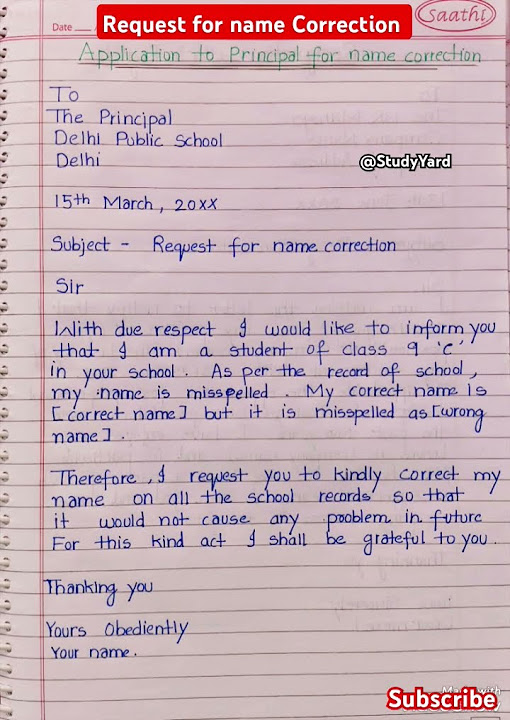 Request for name Correction
Saathi
Date
Application to Principal for name correction
To
The Principal
Delhi Public School
Delhi
@StudyYard
15th March, 20xx
Subject - Request for name correction
Sir
With due respect I would like to inform you
that I am a student of class 9 'C'
in your school. As per the record of school,
my name is misspelled. My correct name is
[correct name] but it is misspelled as [wrong
name].
Therefore, I request you to kindly correct my
name on all the school records so that
it would not cause any problem in future
For this kind act I shall be grateful to you.
Thanking you
Yours Obediently
Your name.
Subscribe